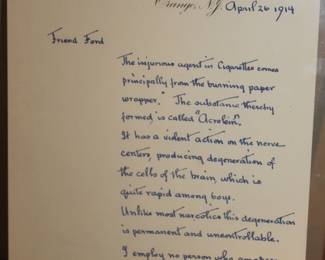 Orange, N.J. April 26 1914
Friend Ford
The injurious agent in Cigarettes comes
principally from the burning paper
wrapper." The substance thereby
formed is called "Acrolein".
It has a violent action on the nerve
centers, producing degeneration of
the cells of the brain, which is
quite rapid among boys.
Unlike most narcotics this degeneration
is permanent and uncontrollable.
I employ no person who smokes